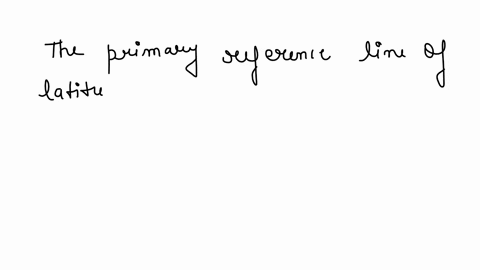 The primary reference line of
latitu